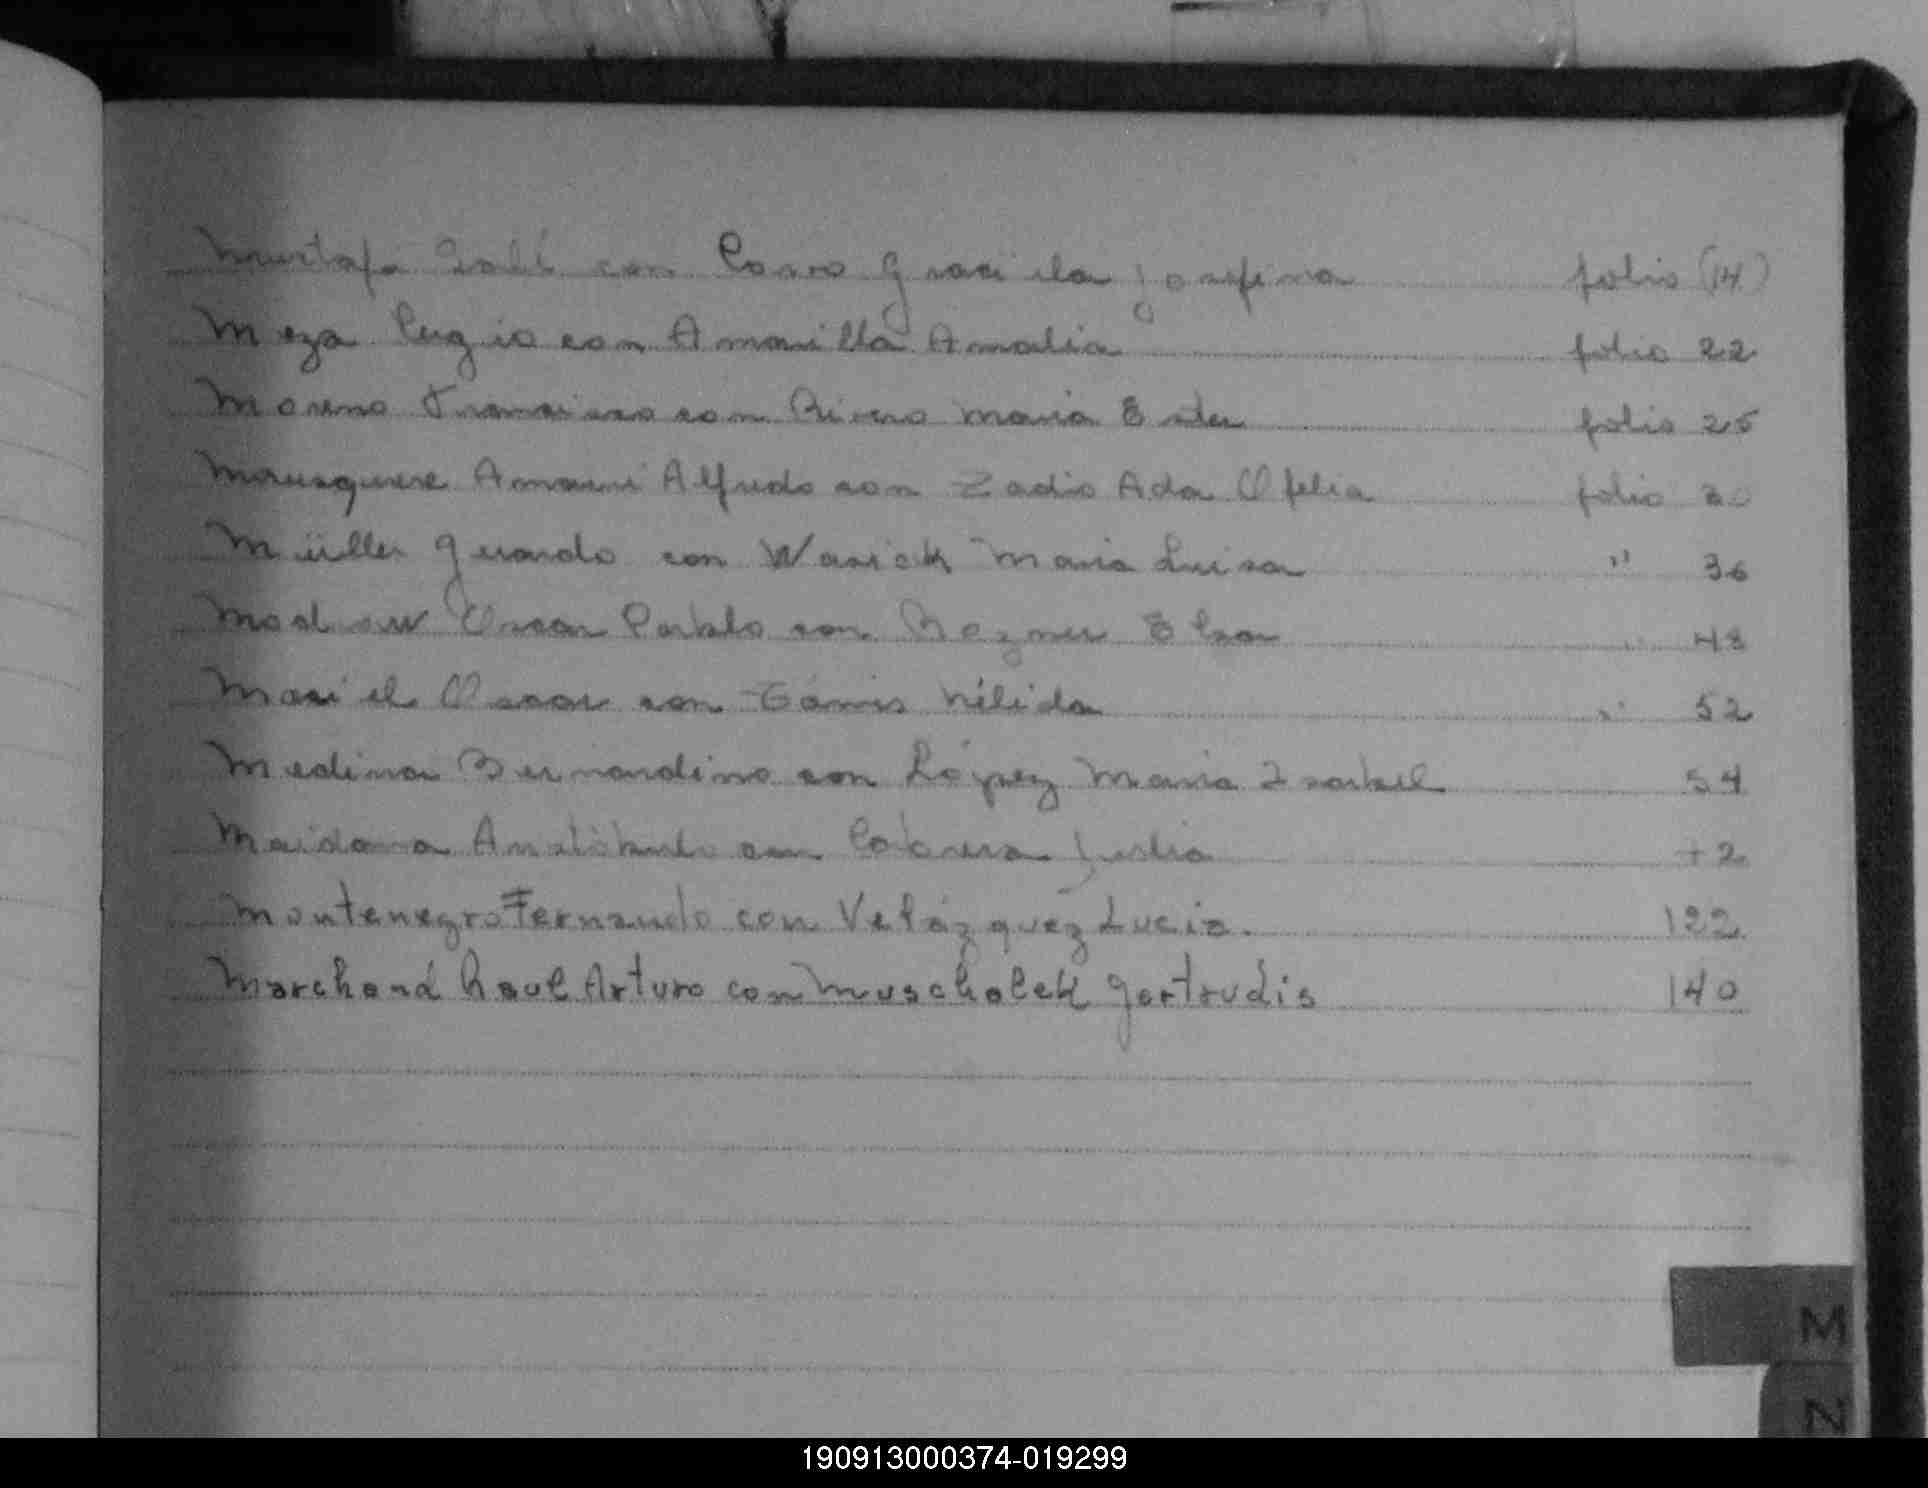 Mustafa con Graciela Josefina folio (14)
Meza Lugio con Amarilla Amalia folio 22
Moreno Francisco con Rivero Maria Ester folio 25
Mousquere Alfredo con Zadio Ada Ofelia folio 30
Müller Gerardo con Warick Maria Luisa " 36
Oscar Pablo con Elsa " 48
Maciel Oscar con Nélida " 52
Medina Bernardino con López Maria Isabel 54
Maidana con Cabrera Julia 72
Montenegro Fernando con Velázquez Lucia. 122
Marchand Raul Arturo con Muscholek Gertrudis 140
M
N
190913000374-019299